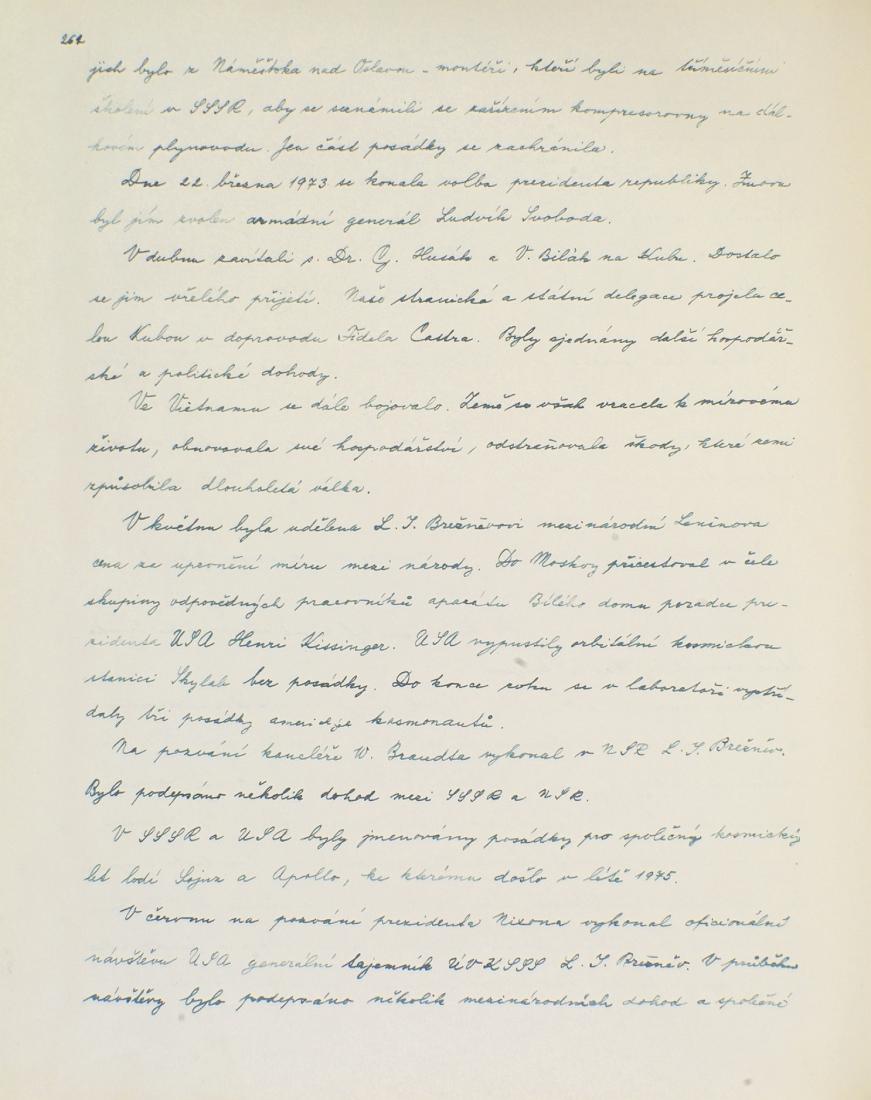 264
jich bylo z Náměštska nad Oslavou - montéři, kteří byli na tříměsíčním
školení v SSSR, aby se seznámili se zařízením kompresorovny na dál-
kovém plynovodu. Jen část posádky se zachránila.
Dne 22. března 1973 se konala volba prezidenta republiky. Znovu
byl jím zvolen armádní generál Ludvík Svoboda.
V dubnu zavítali s. Dr. G. Husák a V. Bilák na Kubu. Dostalo
se jim vřelého přijetí. Naše stranická a státní delegace projela ce-
lou Kubou v doprovodu Fidela Castra. Byly sjednány další hospodář-
ské a politické dohody.
Ve Vietnamu se dále bojovalo. Země se však vracela k mírovému
životu, obnovovala své hospodářství, odstraňovala škody, které zemi
způsobila dlouholetá válka.
V květnu byla udělena L. I. Brežněvovi mezinárodní Leninova
cena za upevnění míru mezi národy. Do Moskvy přicestoval v čele
skupiny odpovědných pracovníků aparátu Bílého domu poradce pre-
zidenta USA Henri Kissinger. USA vypustily orbitální kosmickou
stanici Skylab bez posádky. Do konce roku se v laboratoři vystří-
daly tři posádky kosmonautů.
Na pozvání kancléře W. Brandta vykonal v NSR L. I. Brežněv.
Bylo podepsáno několik dohod mezi SSSR a NSR.
V SSSR a USA byly jmenovány posádky pro společný kosmický
let lodí Sojuz a Apollo, ke kterému došlo v létě 1975.
V červnu na pozvání prezidenta Nixona vykonal oficionální
návštěvu USA generální tajemník ÚV KSSS L. I. Brežněv. V průběhu
návštěvy bylo podepsáno několik mezinárodních dohod a společné